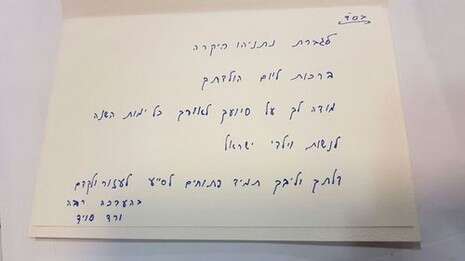 בס"ד
לגברת נתניהו היקרה
ברכות ליום הולדתך
מודה לך על סיועך לאורך כל ימות השנה
לנשות וילדי ישראל
דלתך וליבך תמיד פתוחים לסייע לעזור ולקדם
בהערכה רבה
ורד סויד